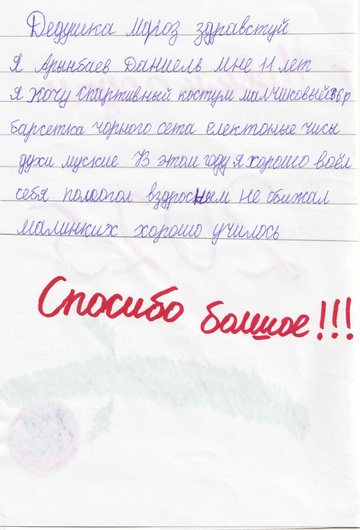 Дедушка мороз здравстуй
Я Арынбаев Даниель мне 11 лет
Я хочу спартивный костум малчиковый 36 р
барсетка чорного сета електоные чисы
духи муские В этом году я хорошо воёл
себя помогол вздросным не обижал
малинких хорошо училось
Спосибо болшое!!!